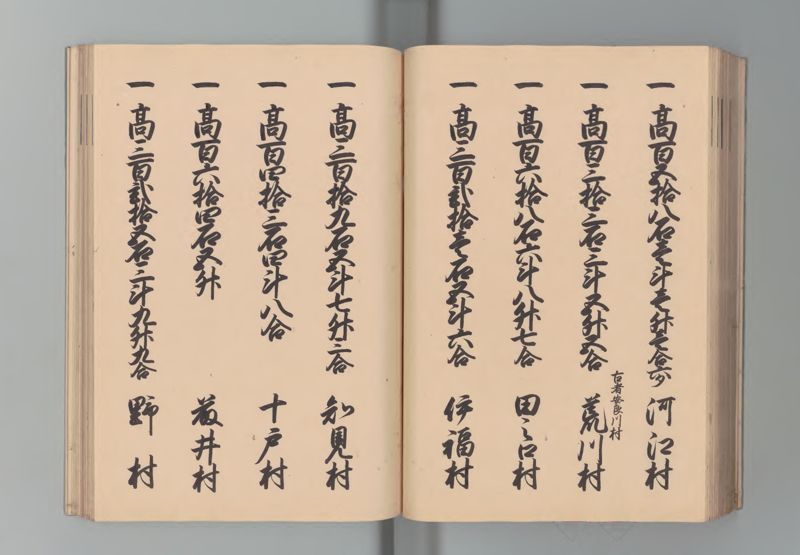 一 高百五拾八石壱斗壱升壱合六夕 河江村
一 高百三拾三石三斗五升五合 荒川村
古者安良川村
一 高百六拾八石六斗八升七合 田之口村
一 高三百弐拾壱石五斗六合 伊福村
一 高三百拾九石五斗七升三合 知見村
一 高百四拾三石四斗八合 十戸村
一 高百六拾四石五升 藪井村
一 高三百弐拾五石三斗九升九合 野村